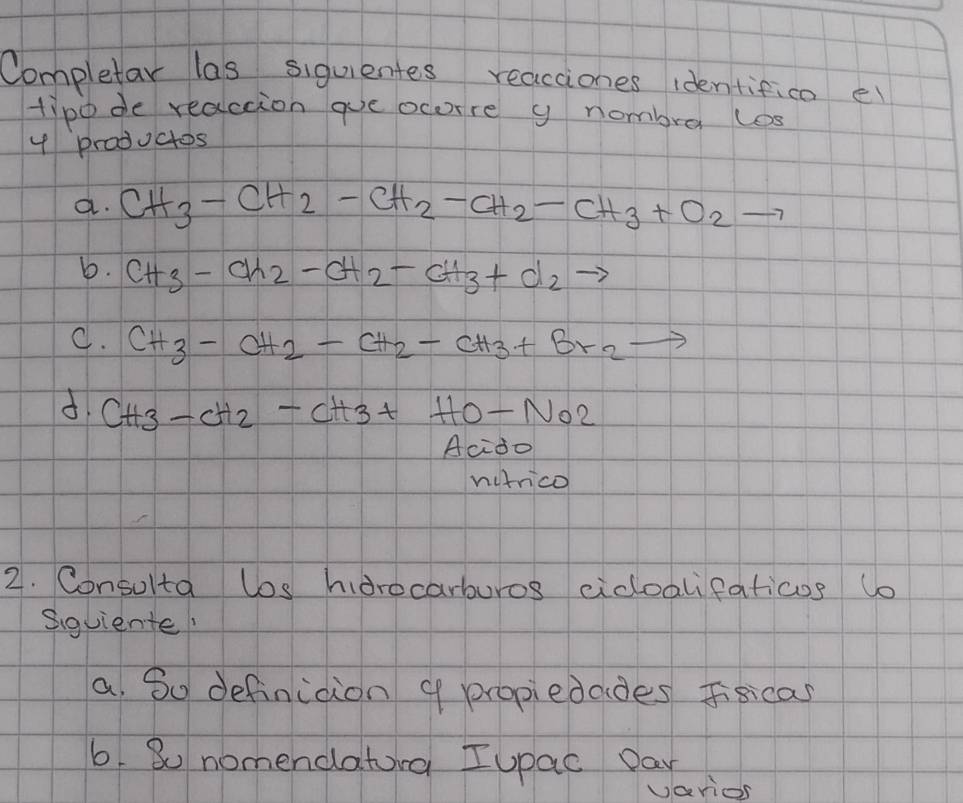 Completar las siguientes reacciones identifico el
tipo de reaccion que ocorre y nombra Los
y productos
a. CH3 - CH2 - CH2 - CH2 - CH3 + O2 →
b. CH3 - CH2 - CH2 - CH3 + Cl2 →
C. CH3 - CH2 - CH2 - CH3 + Br2 →
d. CH3 - CH2 - CH3 + HO - NO2
Acido
nitrico
2. Consulta Los hidrocarburos cicloalifaticos Lo
Siguiente:
a. Su definicion y propiedades Fisicas
b. Su nomenclatura Iupac Dar
varios